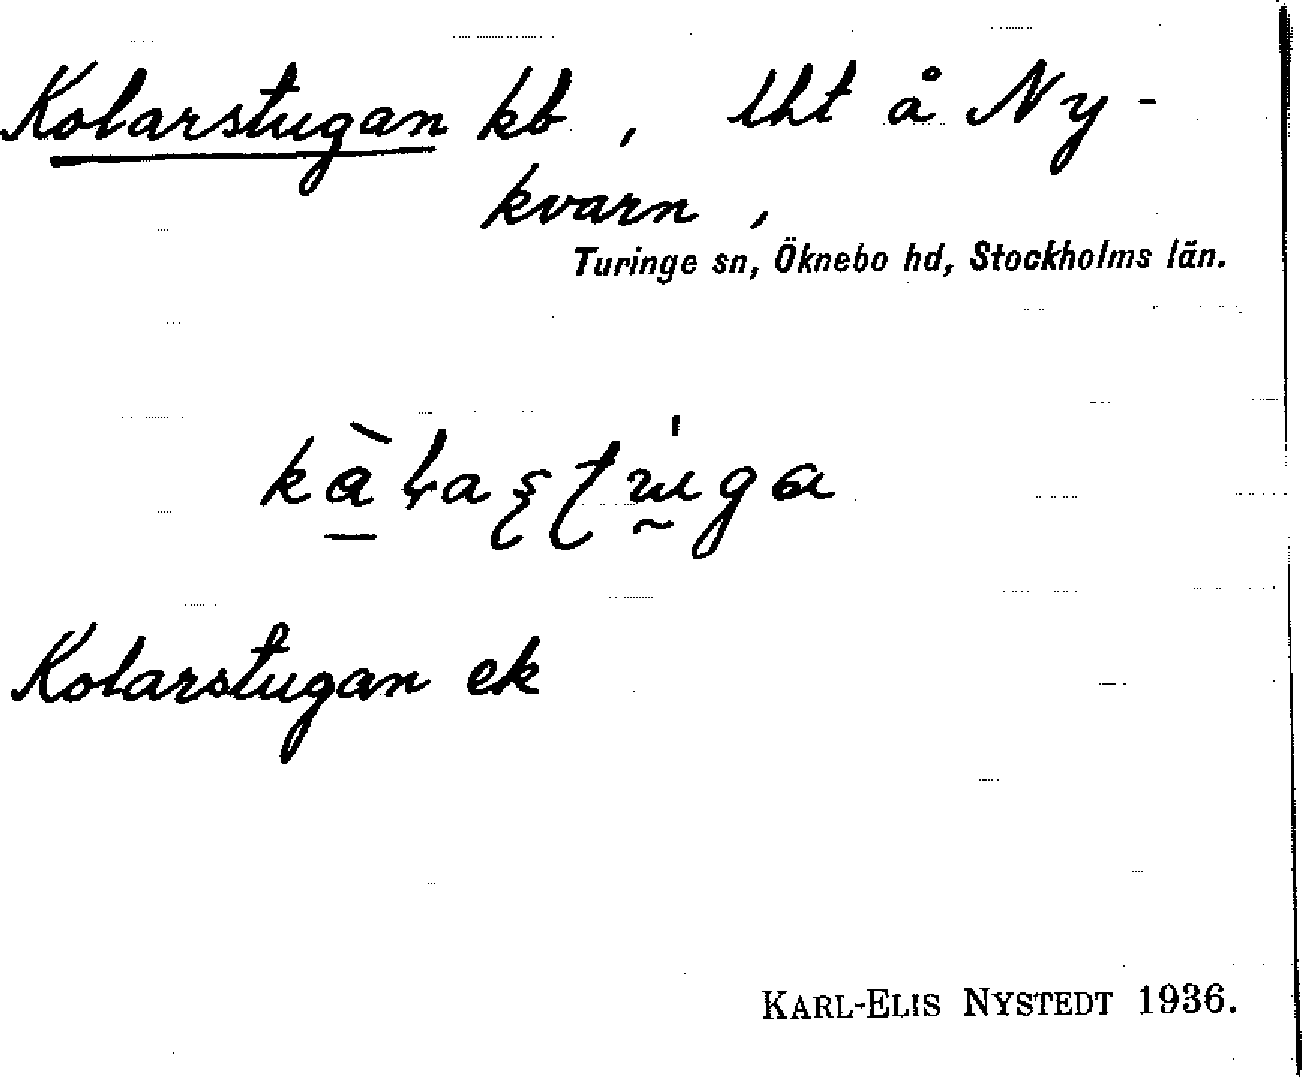 Kolarstugan kb, lht å Ny-
kvarn,
Turinge sn, Öknebo hd, Stockholms län.
Kolarstugan ek
KARL-ELIS NYSTEDT 1936.